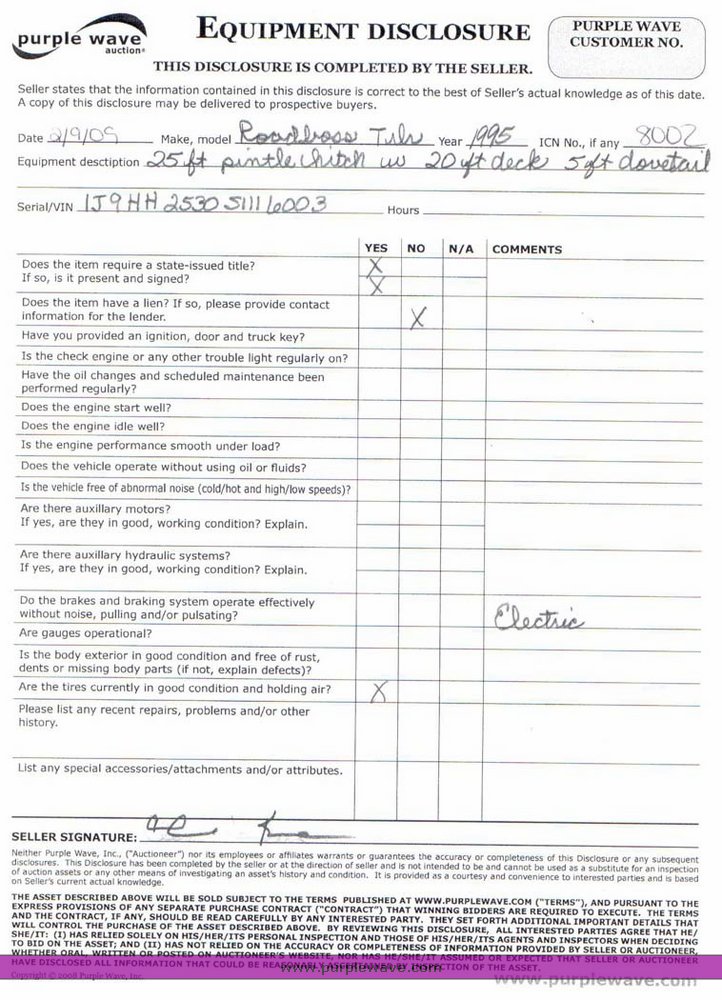 purple wave
auction®
EQUIPMENT DISCLOSURE
PURPLE WAVE
CUSTOMER NO.
THIS DISCLOSURE IS COMPLETED BY THE SELLER.
Seller states that the information contained in this disclosure is correct to the best of Seller's actual knowledge as of this date.
A copy of this disclosure may be delivered to prospective buyers.
Date 2/9/09 Make, model Roadboss Trlr Year 1995 ICN No., if any 8002
Equipment desctiption 25 ft pintle hitch w 20 ft deck 5 ft dovetail
Serial/VIN 1J9HH2530S1116003 Hours
YES NO N/A COMMENTS
Does the item require a state-issued title? X
If so, is it present and signed? X
Does the item have a lien? If so, please provide contact
information for the lender. X
Have you provided an ignition, door and truck key?
Is the check engine or any other trouble light regularly on?
Have the oil changes and scheduled maintenance been
performed regularly?
Does the engine start well?
Does the engine idle well?
Is the engine performance smooth under load?
Does the vehicle operate without using oil or fluids?
Is the vehicle free of abnormal noise (cold/hot and high/low speeds)?
Are there auxillary motors?
If yes, are they in good, working condition? Explain.
Are there auxillary hydraulic systems?
If yes, are they in good, working condition? Explain.
Do the brakes and braking system operate effectively
without noise, pulling and/or pulsating? Electric
Are gauges operational?
Is the body exterior in good condition and free of rust,
dents or missing body parts (if not, explain defects)?
Are the tires currently in good condition and holding air? X
Please list any recent repairs, problems and/or other
history.
List any special accessories/attachments and/or attributes.
SELLER SIGNATURE:
Neither Purple Wave, Inc., ("Auctioneer") nor its employees or affiliates warrants or guarantees the accuracy or completeness of this Disclosure or any subsequent
disclosures. This Disclosure has been completed by the seller or at the direction of seller and is not intended to be and cannot be used as a substitute for an inspection
of auction assets or any other means of investigating an asset's history and condition. It is provided as a courtesy and convenience to interested parties and is based
on Seller's current actual knowledge.
THE ASSET DESCRIBED ABOVE WILL BE SOLD SUBJECT TO THE TERMS PUBLISHED AT WWW.PURPLEWAVE.COM ("TERMS"), AND PURSUANT TO THE
EXPRESS PROVISIONS OF ANY SEPARATE PURCHASE CONTRACT ("CONTRACT") THAT WINNING BIDDERS ARE REQUIRED TO EXECUTE. THE TERMS
AND THE CONTRACT, IF ANY, SHOULD BE READ CAREFULLY BY ANY INTERESTED PARTY. THEY SET FORTH ADDITIONAL IMPORTANT DETAILS THAT
WILL CONTROL THE PURCHASE OF THE ASSET DESCRIBED ABOVE. BY REVIEWING THIS DISCLOSURE, ALL INTERESTED PARTIES AGREE THAT HE/
SHE/IT: (I) HAS RELIED SOLELY ON HIS/HER/ITS PERSONAL INSPECTION AND THOSE OF HIS/HER/ITS AGENTS AND INSPECTORS WHEN DECIDING
TO BID ON THE ASSET; AND (II) HAS NOT RELIED ON THE ACCURACY OR COMPLETENESS OF INFORMATION PROVIDED BY SELLER OR AUCTIONEER,
WHETHER ORAL, WRITTEN OR POSTED ON AUCTIONEER'S WEBSITE, NOR HAS HE/SHE/IT ASSUMED OR EXPECTED THAT SELLER OR AUCTIONEER
HAVE DISCLOSED ALL INFORMATION THAT COULD BE REASONABLY ASCERTAINED BY INSPECTION OF THE ASSET.
www.purplewave.com
www.purplewave.com
Copyright © 2008 Purple Wave, Inc.